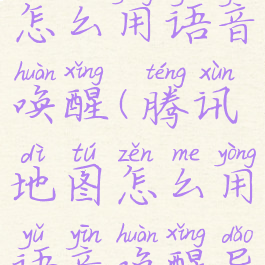 怎么用语音
huàn xǐng téng xùn
唤醒(腾讯
dì tú zěn me yòng
地图怎么用
yǔ yīn huàn xǐng dǎo
语音唤醒导